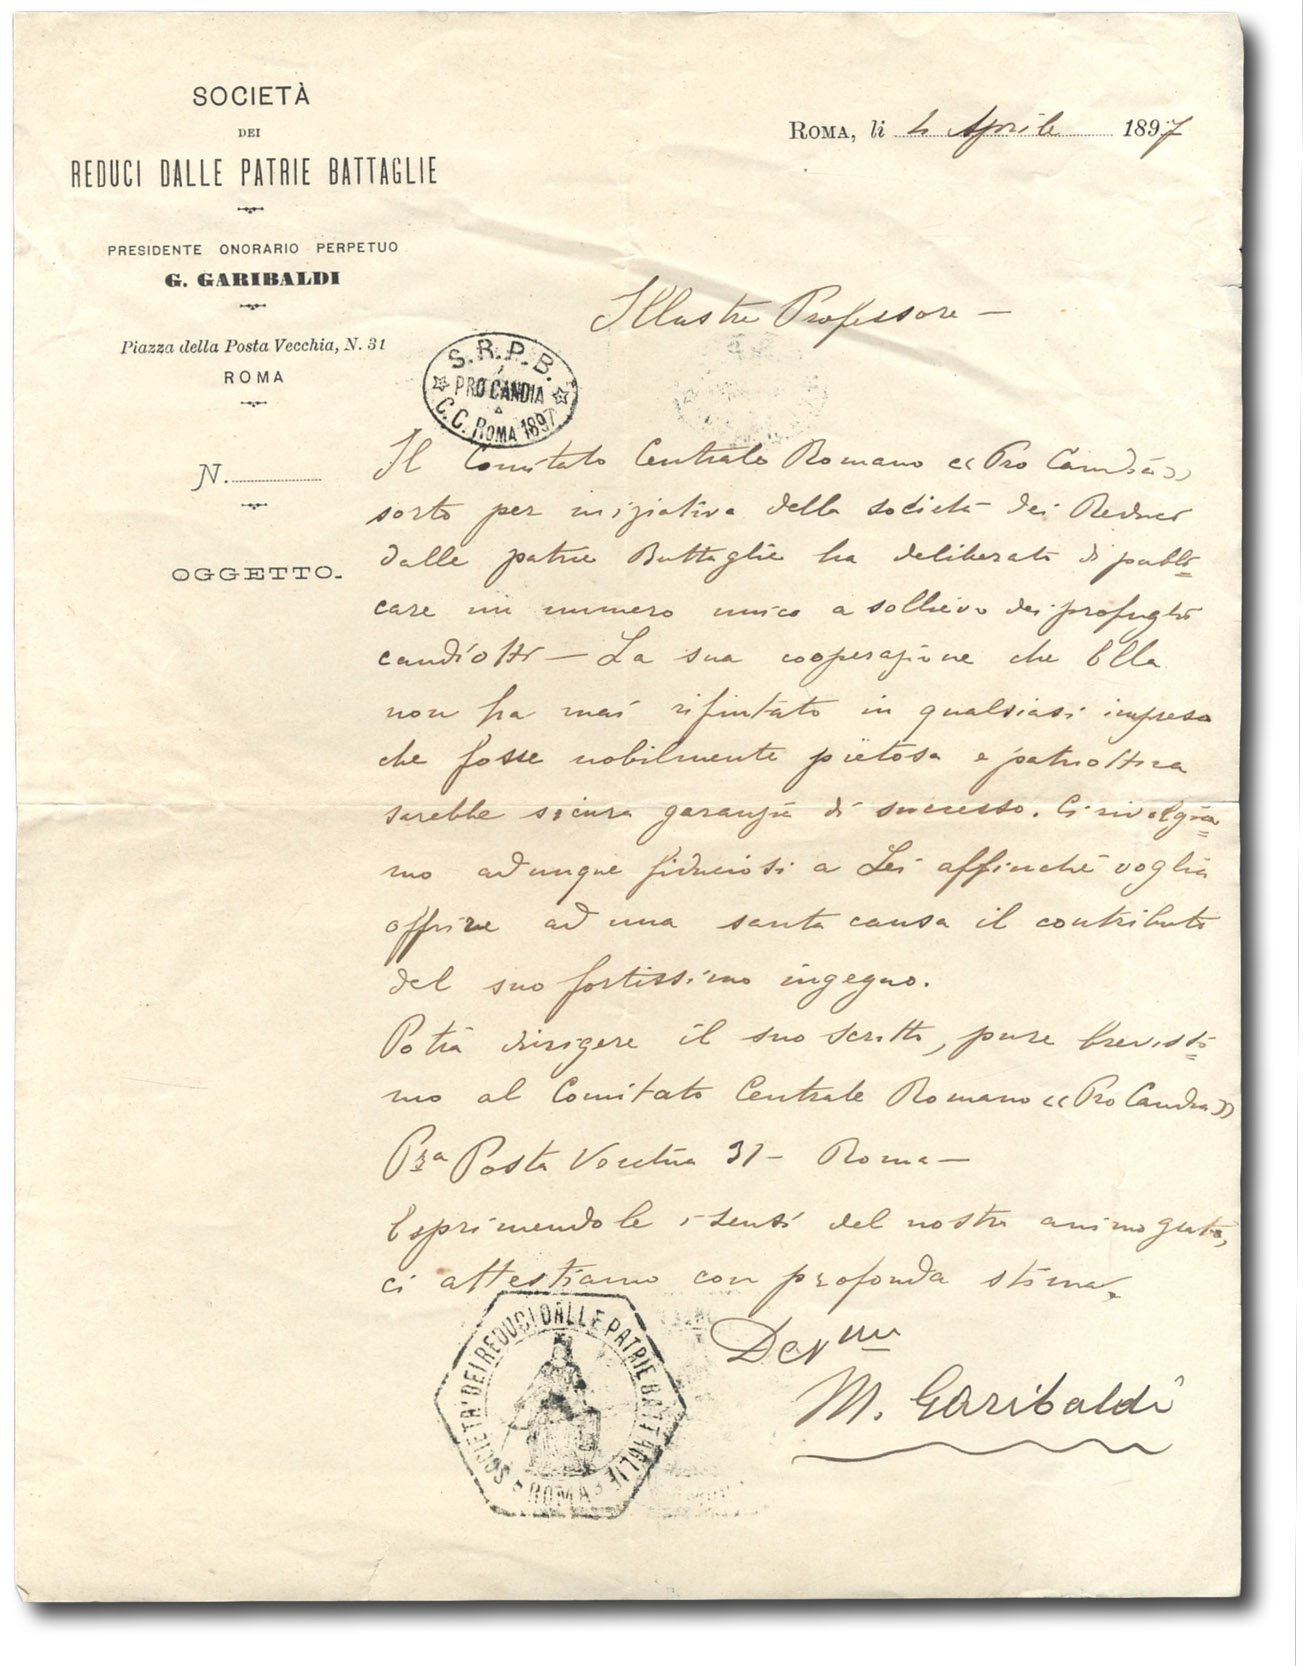 SOCIETÀ
DEI
REDUCI DALLE PATRIE BATTAGLIE
PRESIDENTE ONORARIO PERPETUO
G. GARIBALDI
Piazza della Posta Vecchia, N. 31
ROMA
N.
OGGETTO.
ROMA, li 4 Aprile 1897
S.R.P.B.
PRO CANDIA
C.C. ROMA 1897
Illustre Professore —
Il Comitato Centrale Romano «Pro Candia»
sorto per iniziativa della società dei Reduci
dalle patrie Battaglie ha deliberato di pubbli=
care un numero unico a sollievo dei profughi
candiotti — La sua cooperazione che Ella
non ha mai rifiutato in qualsiasi impresa
che fosse nobilmente pietosa e patriottica
sarebbe sicura garanzia di successo. Ci rivolgia=
mo adunque fiduciosi a Lei affinché voglia
offrire ad una santa causa il contributo
del suo fortissimo ingegno.
Potrà dirigere il suo scritto, pure brevissi=
mo al Comitato Centrale Romano «Pro Candia»
Pza Posta Vecchia 31 — Roma —
Esprimendole i sensi del nostro animo grato,
ci attestiamo con profonda stima.
Devmi
M. Garibaldi
SOCIETA' DEI REDUCI DALLE PATRIE BATTAGLIE
ROMA